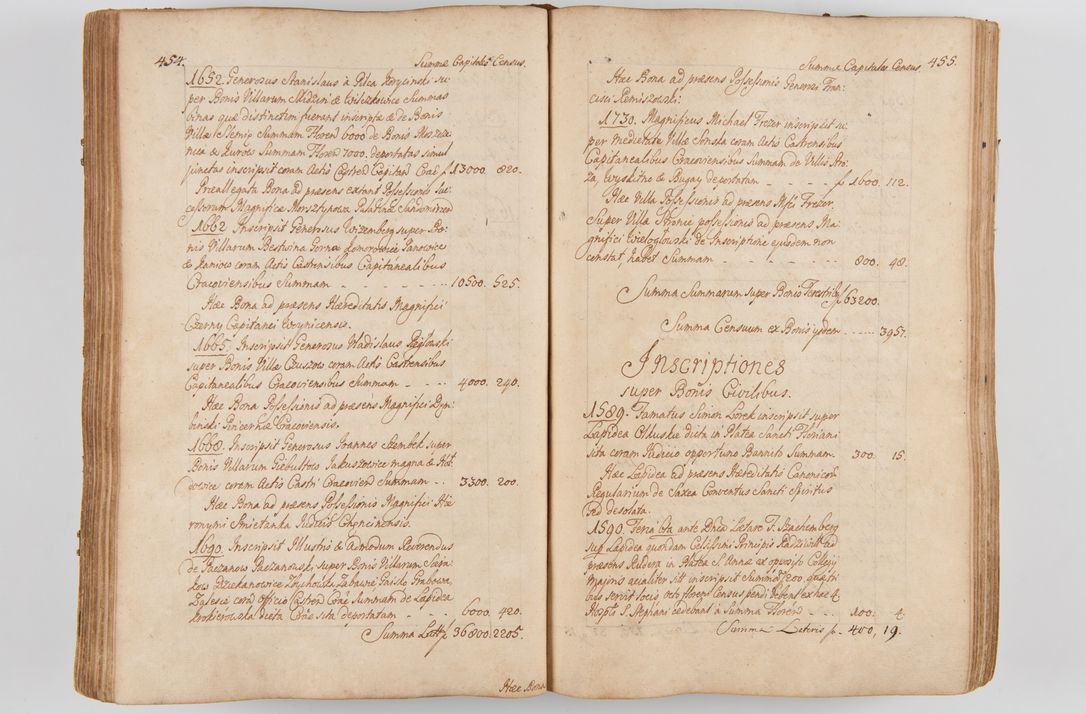 454. Summæ Capitales Census.
1652. Generosus Stanislaus à Pilca Korycinski su-
per Bonis Villarum Skidzin & Wilczkowice Summas
binas quæ distinctim fuerant inscriptæ de Bonis
Villæ Slemię Summam Floren 6000 de Bonis
& Zurow Summam Floren 7000. deportatas simul
junctas inscripsit coram Actis Castren Capitan Crac f 13000. 820.
Præallegata Bona ad præsens extant Possessionis Suc-
cessorum Magnificæ Morsztynowa Palatinæ Sandomirien
1662 Inscripsit Generosus Wizemberg super Bo-
nis Villarum Bestwina Gorna Komorowice Janowice
& Kaniow coram Actis Castrensibus Capitanealibus
Cracoviensibus Summam - - - - - 10500. 525.
Hæc Bona ad præsens Hæreditatis Magnifici
Czerny Capitanei
1665. Inscripsit Generosus Vladislaus
super Bonis Villæ Czuszow coram Actis Castrensibus
Capitanealibus Cracoviensibus Summam - - - 4000. 240.
Hæc Bona Possessionis ad præsens Magnifici Dem-
binski Pincernæ Cracoviensis.
1668. Inscripsit Generosus Joannes Szembek super
Bonis Villarum Giebultow Jakuszowice magna &
coram Actis Castri Cracovien Summam - - 3300. 200.
Hæc Bona ad præsens Possessionis Magnifici Hie-
ronymi Smietanka Judicis Chęncinensis.
1690. Inscripsit Illustris & Admodum Reverendus
de Paczanow Paczanowski super Bonis Villarum
Dziekanowice Grabowa,
Zalesie corã Officio Castren Crac Summam de Lapidea
Krokierowska dicta Crac sita deportatam - - 6000. 420.
Summa Latis 36800. 2205.
Hæc Bona
Summæ Capitales Census 455.
Hæc Bona ad præsens Possessionis Generosi Fran-
cisci Remiszowski.
1730. Magnificus Michael Frezer inscripsit su-
per medietate Villæ Sonska coram Actis Castrensibus
Capitanealibus Cracoviensibus Summam de Villis Bro-
za, & Bugay deportatam - - - - f 1600. 112.
Hæc Villa Possessionis ad præsens Mfci Frezer.
Super Villa Stronie possessionis ad præsens Ma-
gnifici Wieloglowski de Inscriptione ejusdem non
constat, habet Summam - - - - - 800. 48.
Summa Summarum super Bonis Terestrib f 63200.
Summa Censuum ex Bonis ijsdem - - - - 3957.
Inscriptiones
super Bonis Civilibus.
1589. Famatus Simon Lorek inscripsit super
Lapidea Olkuskie dicta in Platea Sancti Floriani
sita coram Judicio opportuno Bannito Summam. 300. 15.
Hæc Lapidea ad præsens Hæreditatis Canonicoru
Regularium de Saxea Conventus Sancti Spiritus
sed desolata.
1590. Feria 6ta ante Dnicã Lætare T. Szachemberg
sup Lapidea quondam Celsissimi Principis Radziwill ad
præsens Ruldera in Platea S. Annæ ex opposito Collegij
Majoris qualiter sit inscripsit Summã 1200.
bus servit locis octo floreni Census pendi debent ex hac 4
Hospts S. Stephani cedebant à Summa Floren - - 100. 4.
Summa Lateris f. 400, 19.